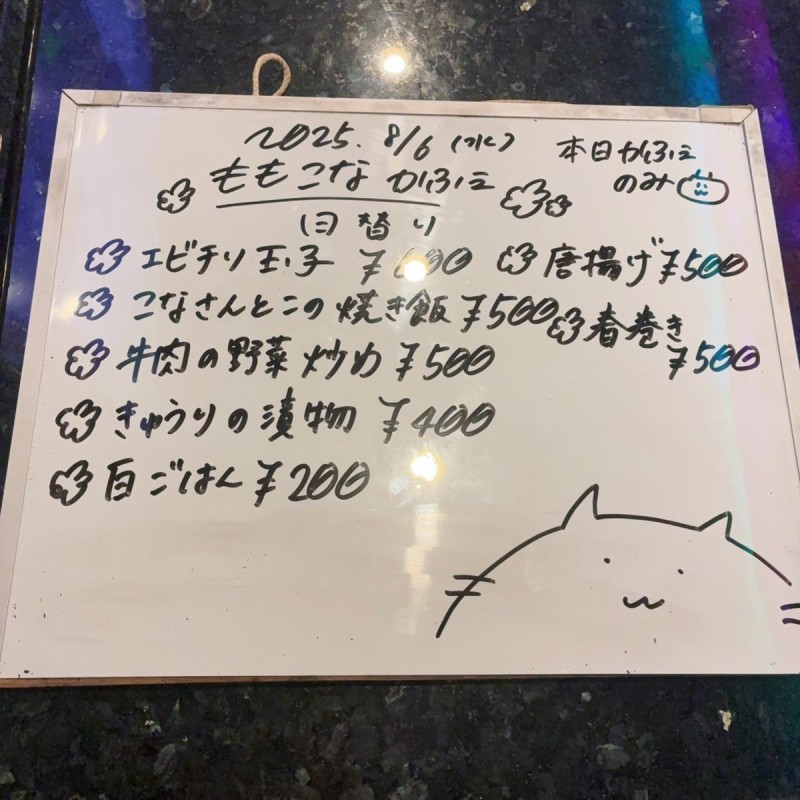 2025. 8/6 (水)
本日かふぇ
のみ
ももこな かふぇ
日替り
エビチリ玉子 ¥600
唐揚げ ¥500
こなさんとこの焼き飯 ¥500
春巻き
¥500
牛肉の野菜炒め ¥500
きゅうりの漬物 ¥400
白ごはん ¥200